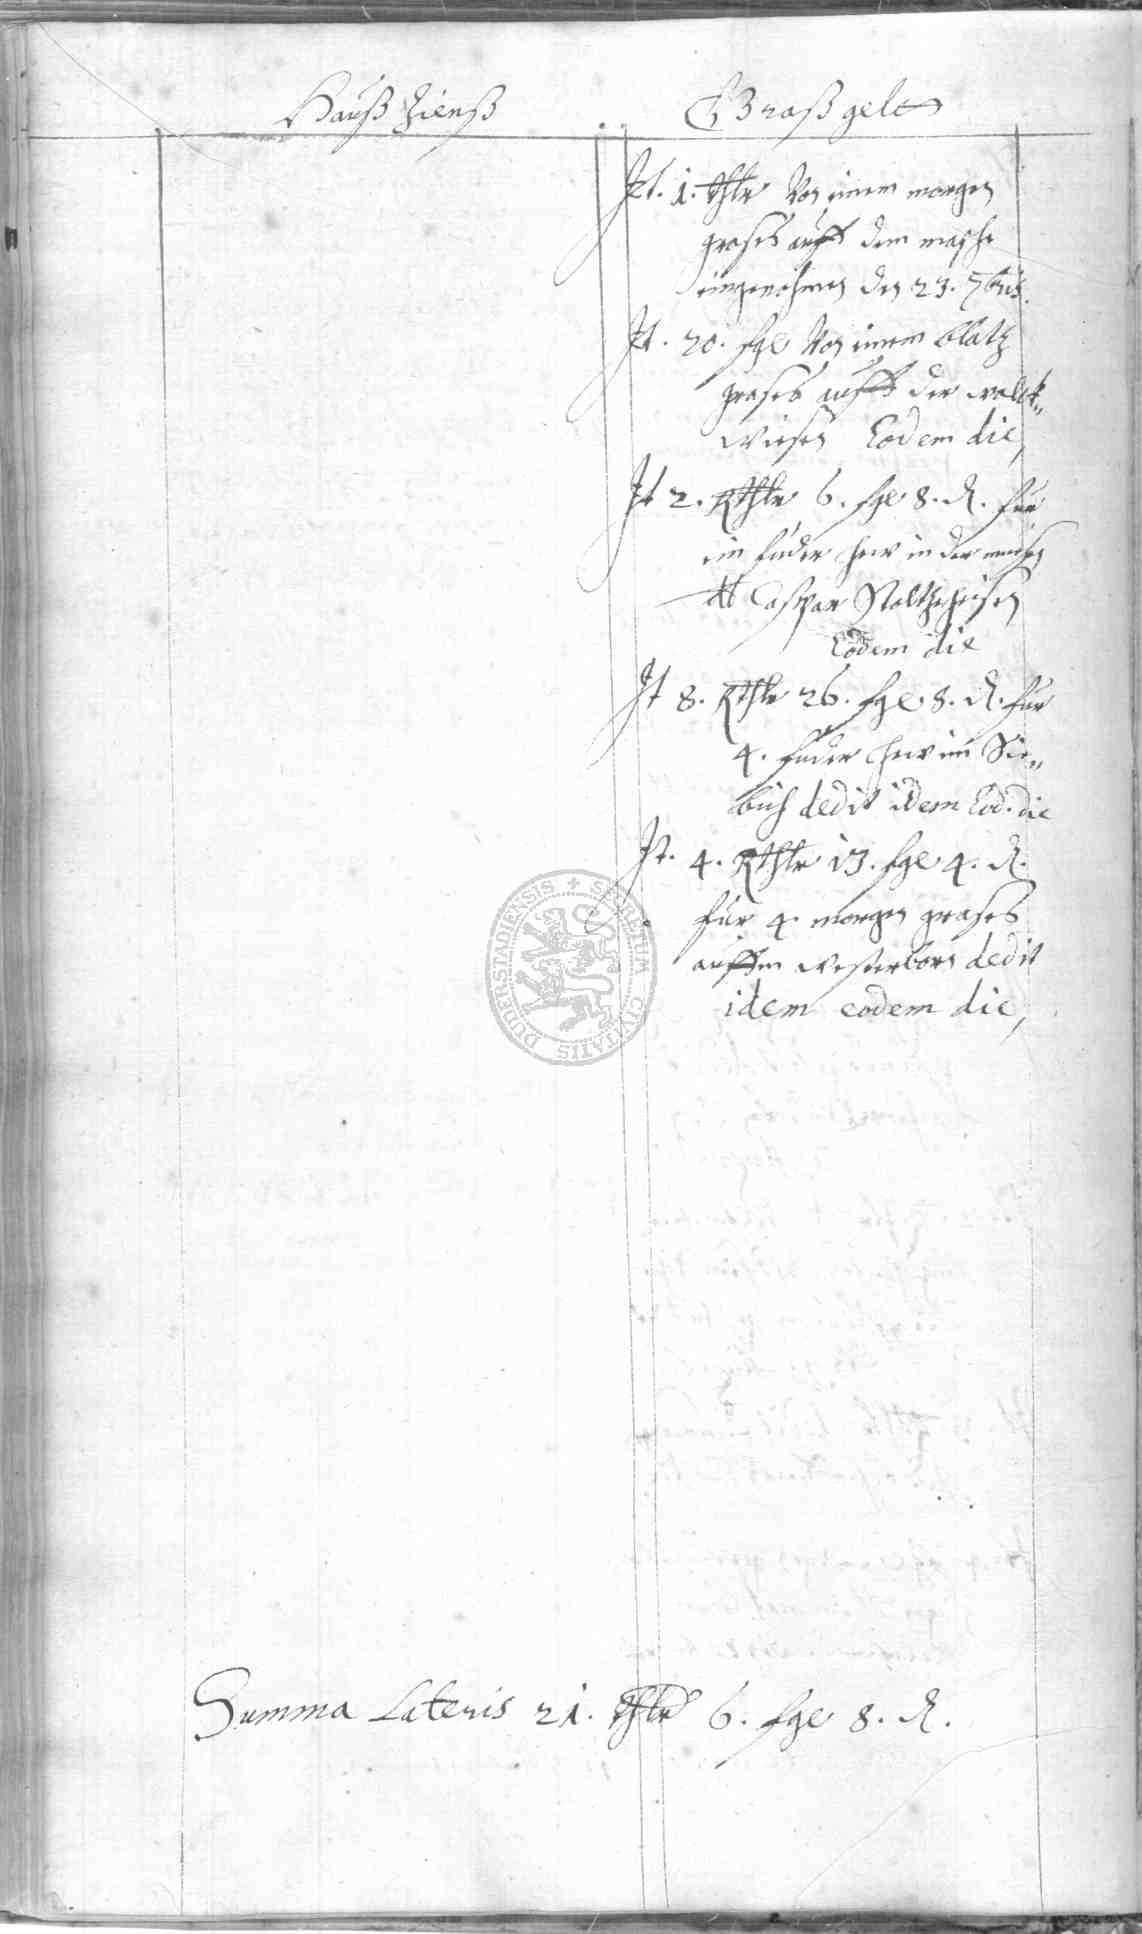 Hauß Zienß
Graß gelt
It. 1. thlr Von einem morgen
grases auff dem masche
eingenohmen den 23. 7bris.
It. 20. sgl Von einem blatz
grases auff der walck„
wiesen Eodem die,
It 2. Rthlr 6. sgl 8. d. für
ein fuder hew in der
dt Caspar Noltheheisen
Eodem die
It 8. Rthlr 26. sgl 8. d. für
4. fuder hew im Sie„
bich dedit idem Eod. die
It. 4. Rthlr 13. sgl 4. d.
für 4. morgen grases
auffm westerborn dedit
idem eodem die,
SECRETUM CIVITATIS DUDERSTADIENSIS
Summa Lateris 21. thlr 6. sgl 8. d.